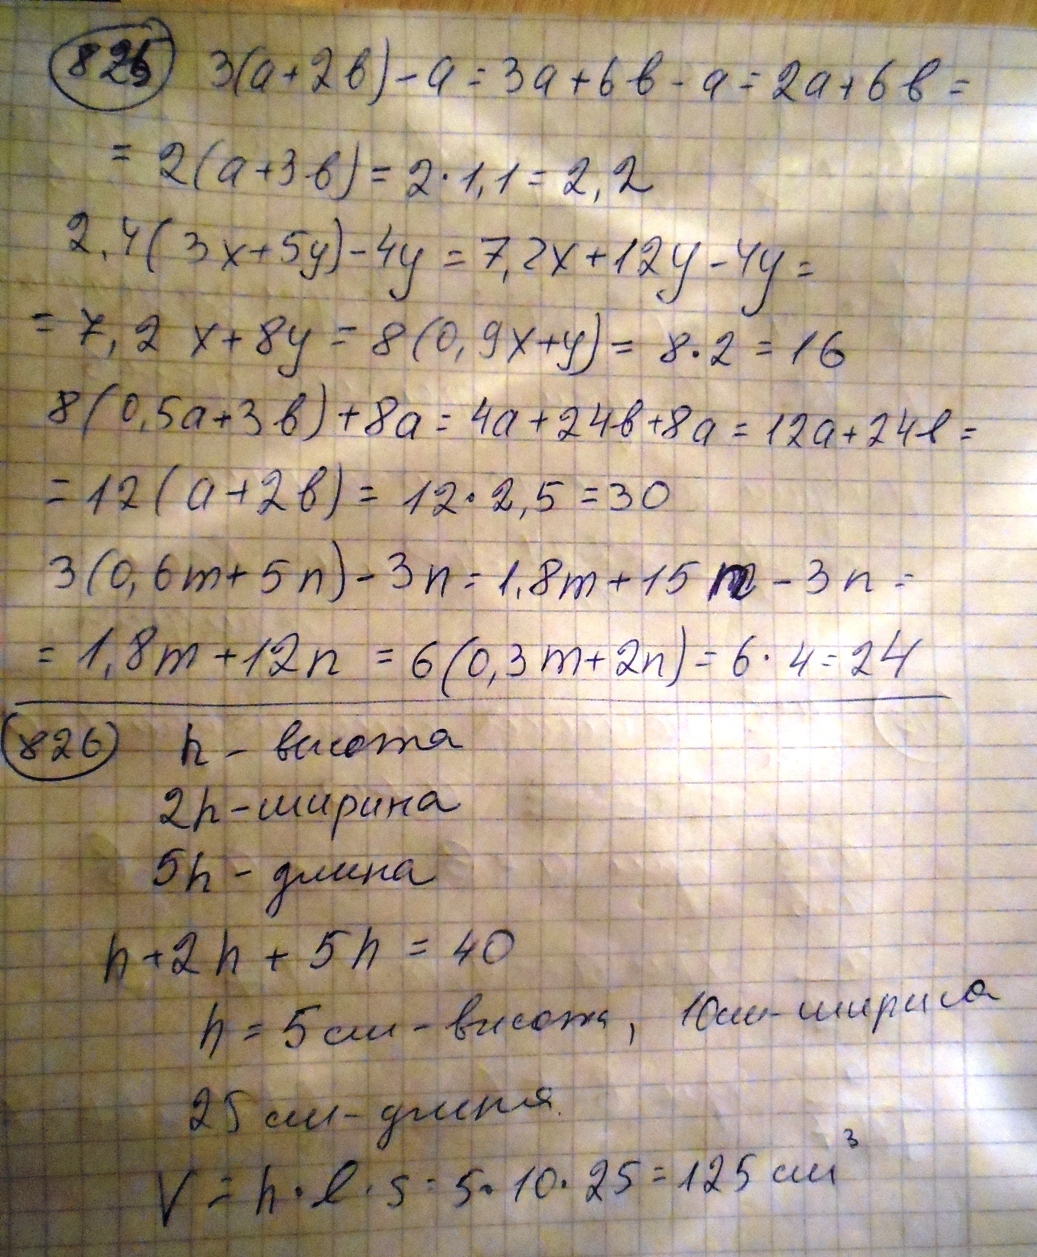 825 3(a+2в)-a=3a+6в-a=2a+6в=
=2(a+3в)=2·1,1=2,2
2,4(3x+5y)-4y=7,2x+12y-4y=
=7,2x+8y=8(0,9x+y)=8·2=16
8(0,5a+3в)+8a=4a+24в+8a=12a+24в=
=12(a+2в)=12·2,5=30
3(0,6m+5n)-3n=1,8m+15n-3n=
=1,8m+12n=6(0,3m+2n)=6·4=24
826 h-высота
2h-ширина
5h-длина
h+2h+5h=40
h=5см-высота, 10см-ширина
25см-длина.
V=h·l·s=5·10·25=125см³